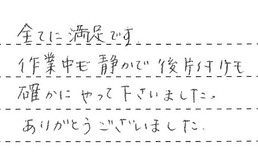 全てに満足です
作業中も静かで後片付けも
確かにやって下さいました。
ありがとうございました.